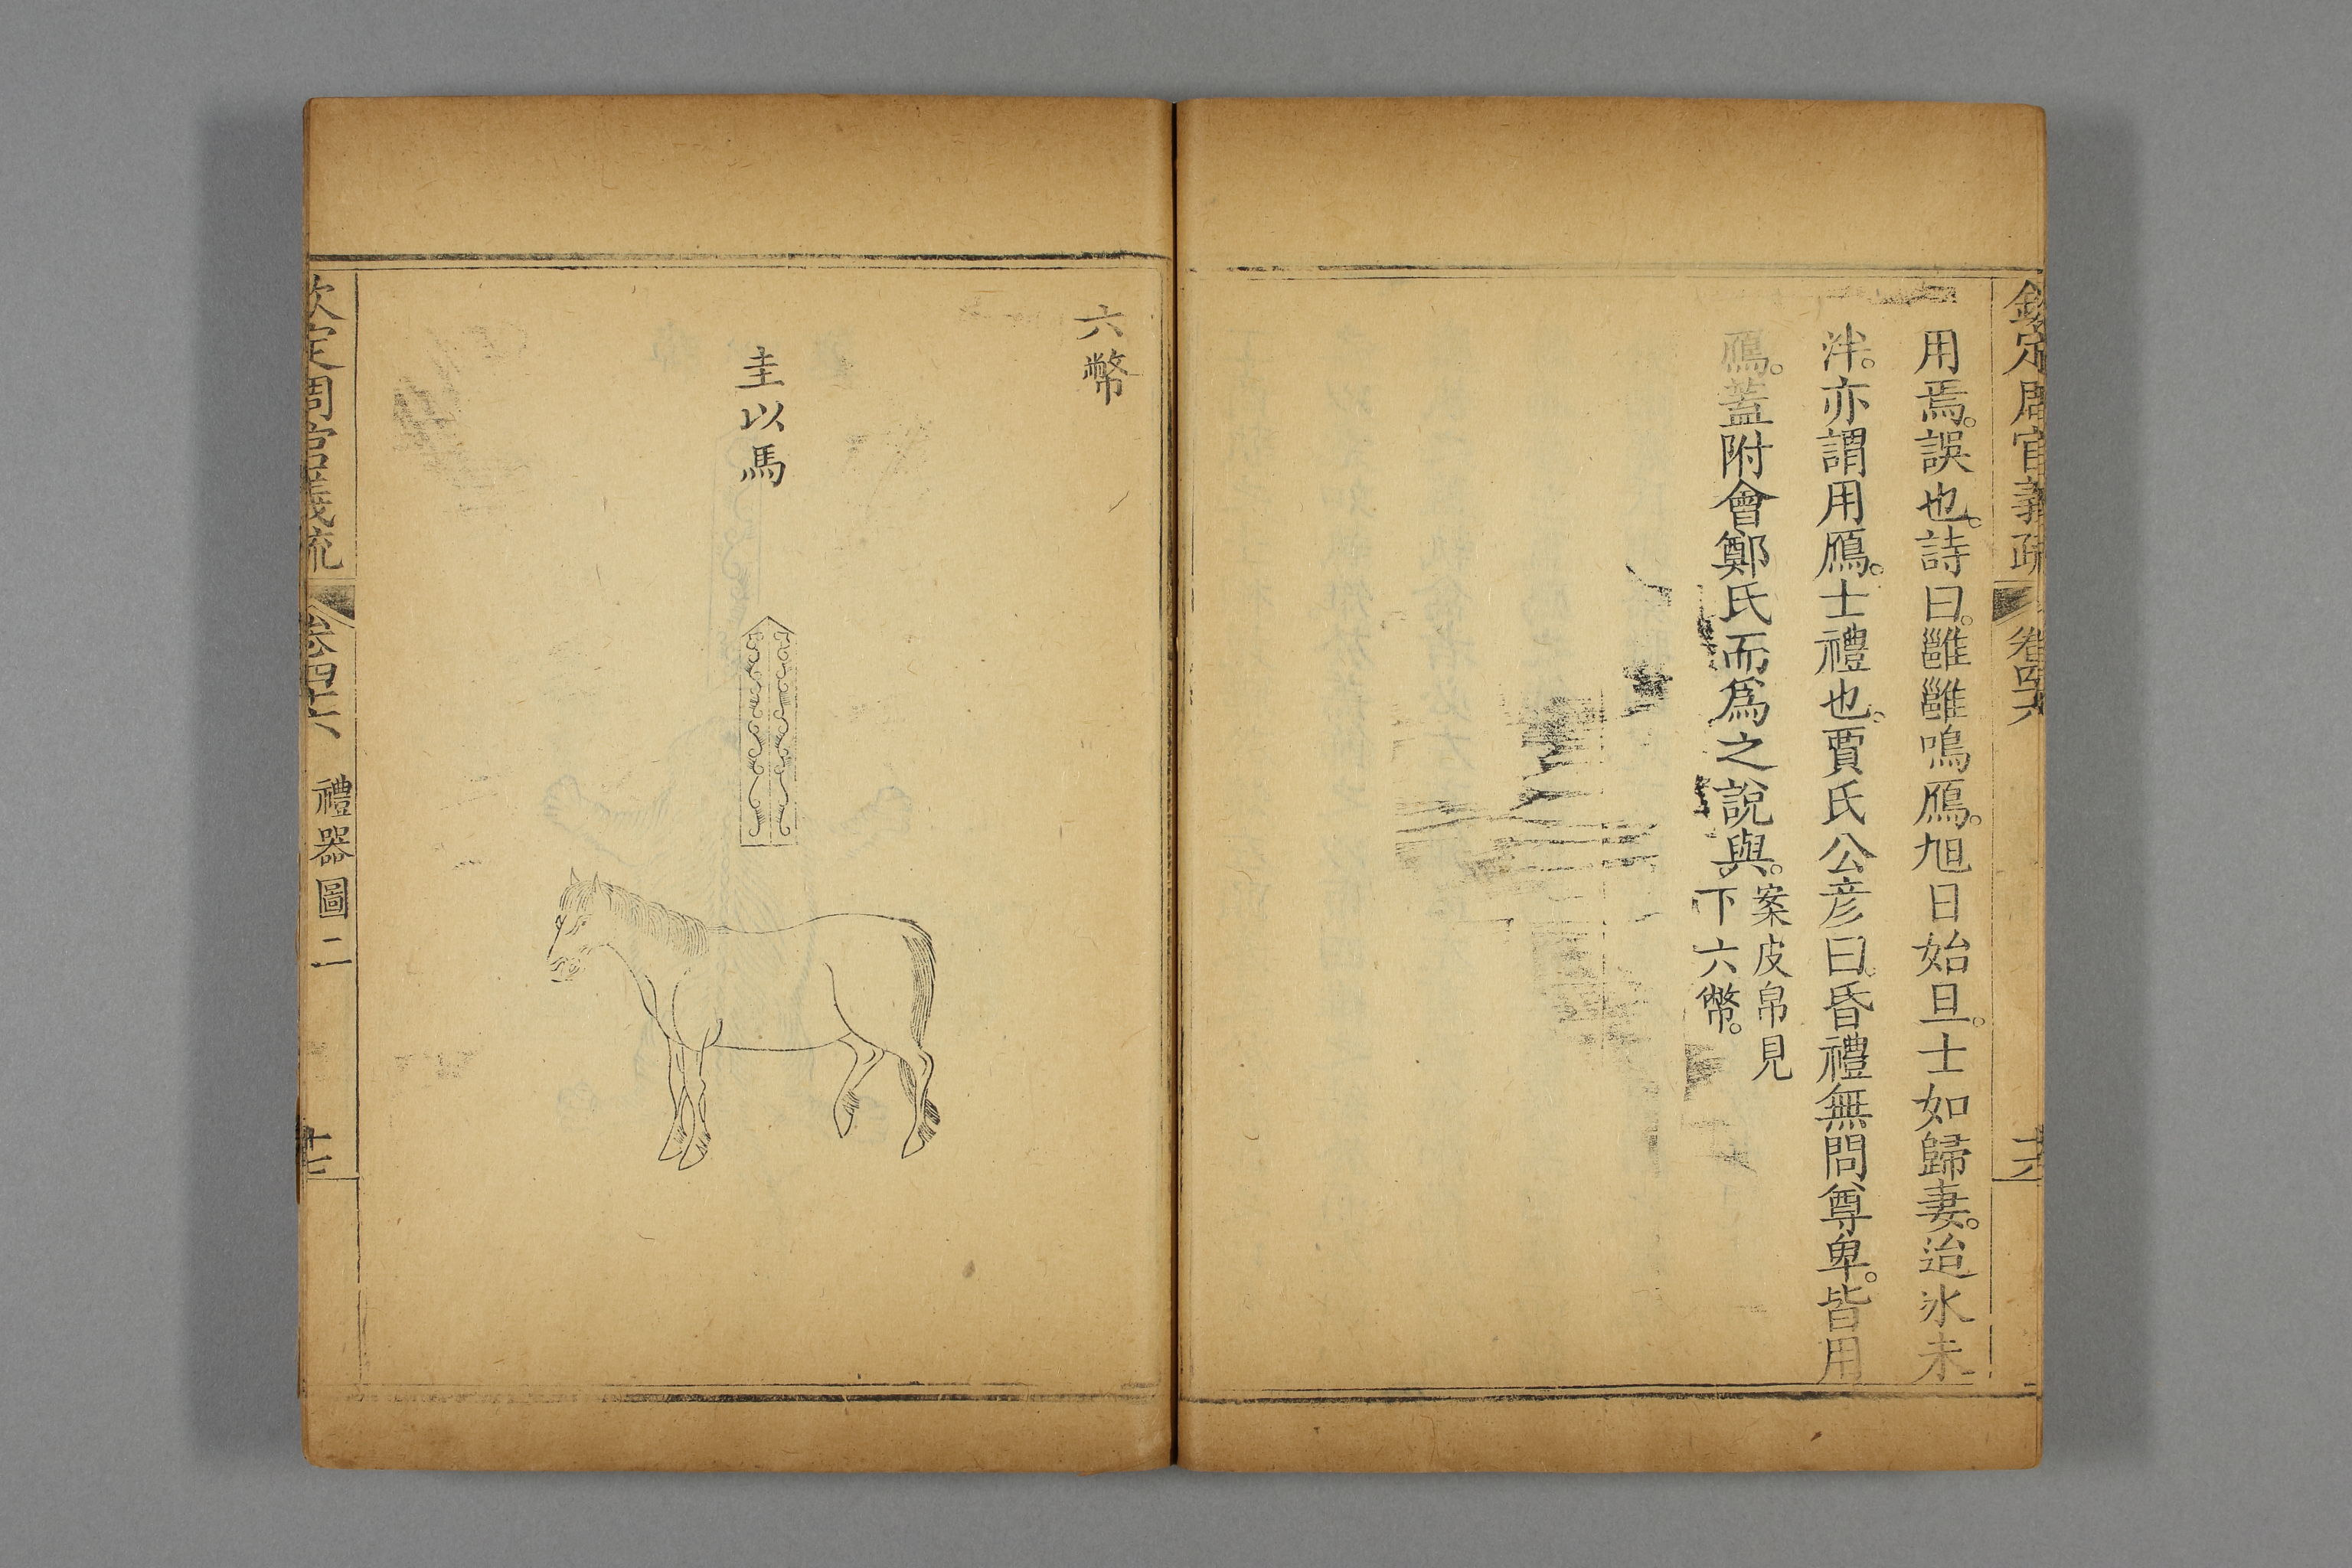 欽定周官義疏 卷四十六
用焉。誤也。詩曰。雝雝鳴鴈。旭日始旦。士如歸妻。迨氷未
泮。亦謂用鴈。士禮也。賈氏公彦曰。昏禮無問尊卑。皆用
鴈。蓋附會鄭氏而爲之說與。案皮帛見
下六幣。
六幣
圭以馬
欽定周官義疏 卷四十六 禮器圖二